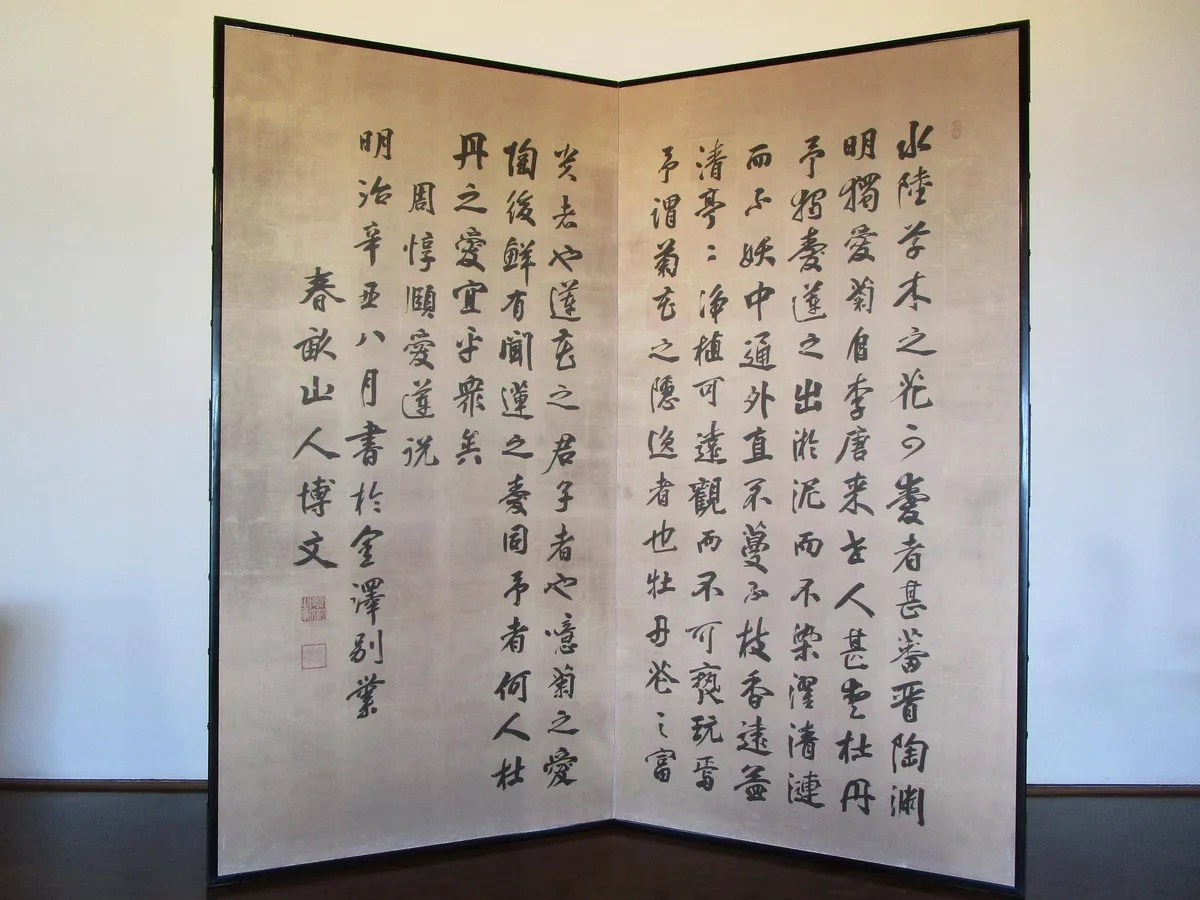 水陸草木之花可愛者甚蕃晋陶渊
明獨愛菊自李唐来世人甚愛牡丹
予獨愛蓮之出淤泥而不染濯清漣
而不妖中通外直不蔓不枝香遠益
清亭〻淨植可遠觀而不可褻玩焉
予謂菊花之隱逸者也牡丹花之富
貴者也蓮花之君子者也噫菊之愛
陶後鮮有聞蓮之愛同予者何人牡
丹之愛宜乎衆矣
周惇頤愛蓮説
明治辛丑八月書於金澤別業
春畝山人博文